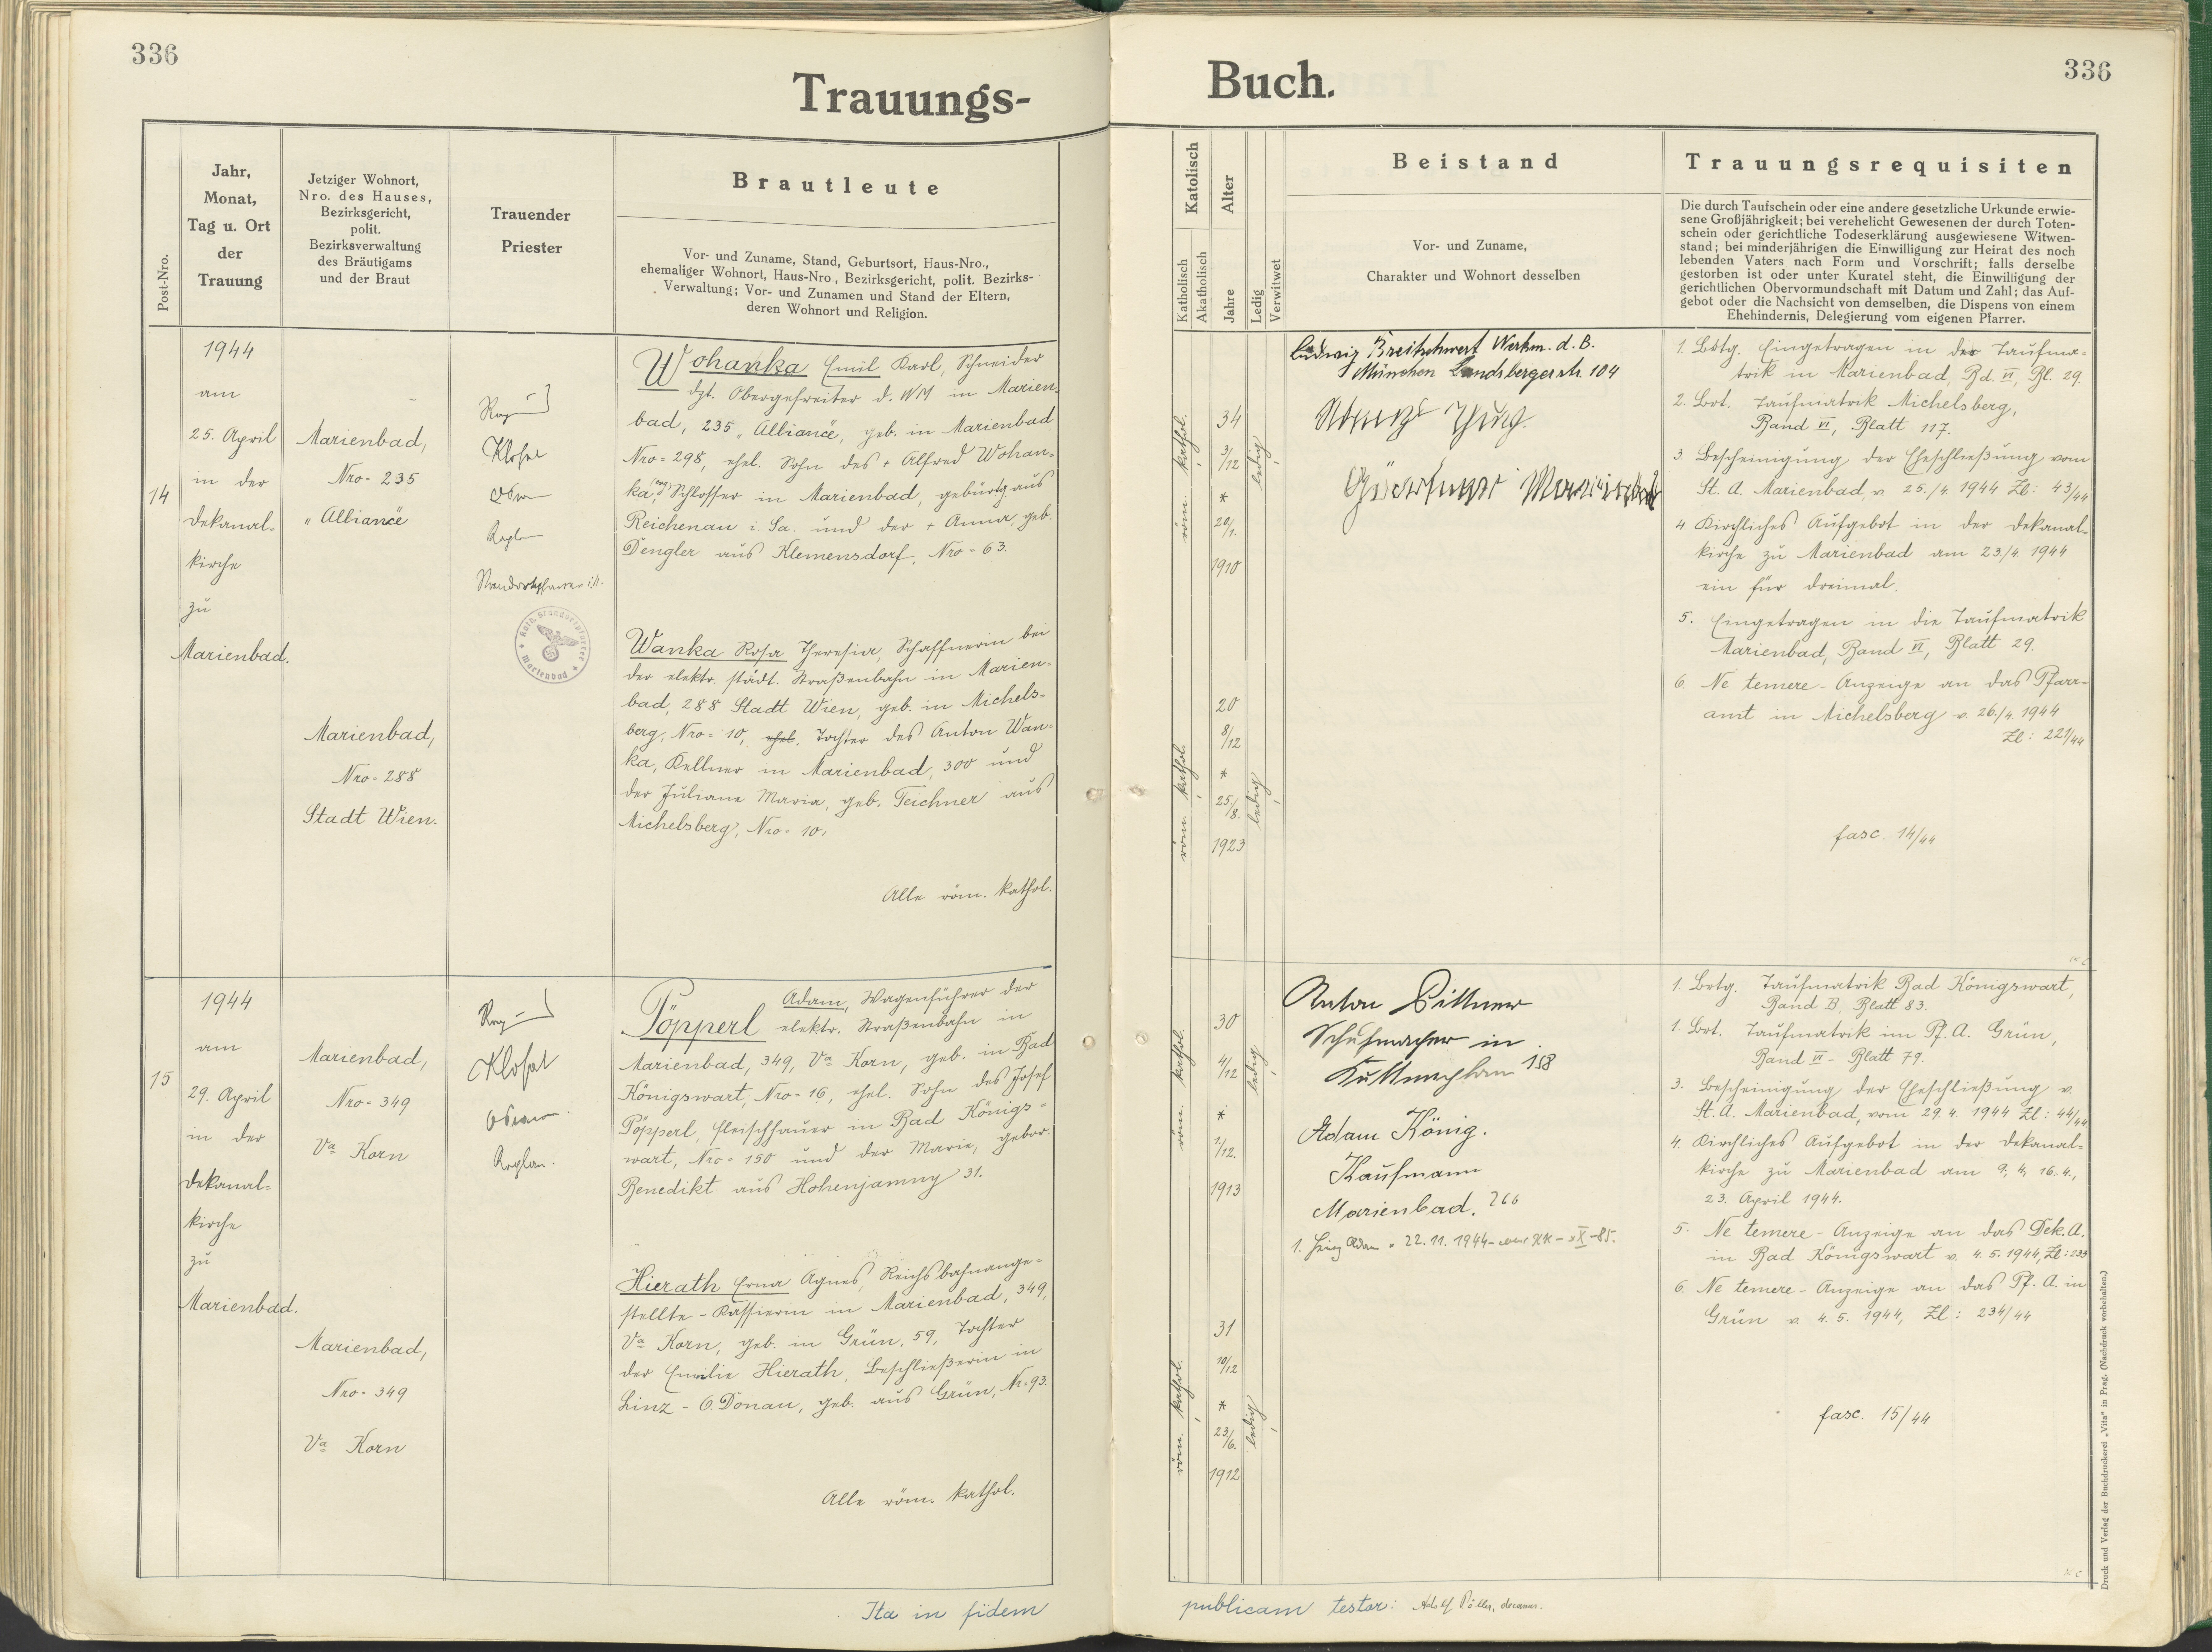 336
Trauungs-
Jahr,
Monat,
Tag u. Ort
der
Trauung
Post-Nro.
Jetziger Wohnort,
Nro. des Hauses,
Bezirksgericht,
polit.
Bezirksverwaltung
des Bräutigams
und der Braut
Trauender
Priester
Brautleute
Vor- und Zuname, Stand, Geburtsort, Haus-Nro.,
ehemaliger Wohnort, Haus-Nro., Bezirksgericht, polit. Bezirks-
Verwaltung; Vor- und Zunamen und Stand der Eltern,
deren Wohnort und Religion.
14
1944
am
25. April
in der
Dekanal-
kirche
zu
Marienbad.
Marienbad,
Nro = 235
"Alliance
Marienbad,
Nro = 288
Stadt Wien.
Klofat
Kath. Standortpfarrer
* Marienbad *
Wohanka Emil Karl, Schneider
dzt. Obergefreiter d. WM in Marien-
bad, 235 "Alliance, geb. in Marienbad
Nro = 298, ehel. Sohn des + Alfred Wohan-
ka, Schlosser in Marienbad, gebürtig aus
Reichenau i. Sa. und der + Anna, geb.
Dengler aus Klemensdorf, Nro = 63.
Wanka Rosa Theresia, Schaffnerin bei
der elektr. städt. Straßenbahn in Marien-
bad, 288 Stadt Wien, geb. in Michels-
berg, Nro = 10, ehel. Tochter des Anton Wan-
ka, Kellner in Marienbad, 300 und
der Juliane Maria, geb. Teichner aus
Michelsberg, Nro = 10.
Alle röm. kathol.
15
1944
am
29. April
in der
Dekanal-
kirche
zu
Marienbad.
Marienbad,
Nro = 349
Va Korn
Marienbad,
Nro = 349
Va Korn
Klofat
Kaplan.
Adam, Wagenführer der
Pöpperl elektr. Straßenbahn in
Marienbad, 349, Va Korn, geb. in Bad
Königswart, Nro = 16, ehel. Sohn des Josef
Pöpperl, Fleischhauer in Bad Königs-
wart, Nro = 150 und der Marie, gebor.
Benedikt aus Hohenjamny 31.
Hierath Erna Agnes, Reichsbahnange-
stellte - Kassierin in Marienbad, 349,
Va Korn, geb. in Grün, 59, Tochter
der Emilie Hierath, Beschließerin in
Linz - O. Donau, geb. aus Grün, Nr = 93.
Alle röm. kathol.
Ita in fidem
336
Buch.
Katolisch
Katholisch
Akatholisch
Alter
Jahre
Ledig
Verwitwet
Beistand
Vor- und Zuname,
Charakter und Wohnort desselben
Trauungsrequisiten
Die durch Taufschein oder eine andere gesetzliche Urkunde erwie-
sene Großjährigkeit; bei verehelicht Gewesenen der durch Toten-
schein oder gerichtliche Todeserklärung ausgewiesene Witwen-
stand; bei minderjährigen die Einwilligung zur Heirat des noch
lebenden Vaters nach Form und Vorschrift; falls derselbe
gestorben ist oder unter Kuratel steht, die Einwilligung der
gerichtlichen Obervormundschaft mit Datum und Zahl; das Auf-
gebot oder die Nachsicht von demselben, die Dispens von einem
Ehehindernis, Delegierung vom eigenen Pfarrer.
röm. kathol.
34
3/12
*
20/1.
1910
ledig
röm. kathol.
20
8/12
*
25/8.
1923
ledig
Ludwig Breitschwert Werkm. d. B.
München Landsbergerstr. 104
1. Brtg. Eingetragen in der Taufma-
trik in Marienbad, Bd. VI, Bl. 29.
2. Brt. Taufmatrik Michelsberg,
Band VI, Blatt 117.
3. Bescheinigung der Eheschließung vom
St. A. Marienbad, v. 25./4. 1944 Zl: 43/44
4. Kirchliches Aufgebot in der Dekanal-
kirche zu Marienbad am 23/4. 1944
ein für dreimal.
5. Eingetragen in die Taufmatrik
Marienbad, Band VI, Blatt 29.
6. Ne temere - Anzeige an das Pfarr-
amt in Michelsberg v. 26./4. 1944
Zl: 221/44
fasc. 14/44
röm. kathol.
30
4/12
*
1/12.
1913
ledig
röm. kathol.
31
10/12
*
23/6.
1912
ledig
Anton Bittner
Schuhmacher in
Kuttnaplan 158
Adam König.
Kaufmann
Marienbad. 266
22. 11. 1944
1. Brtg. Taufmatrik Bad Königswart,
Band B, Blatt 83.
1. Brt. Taufmatrik im Pf. A. Grün,
Band VI - Blatt 79.
3. Bescheinigung der Eheschließung v.
St. A. Marienbad, vom 29. 4. 1944 Zl: 44/44
4. Kirchliches Aufgebot in der Dekanal-
kirche zu Marienbad am 9. 4. 16. 4.,
23. April 1944.
5. Ne temere - Anzeige an das Dek. A.
in Bad Königswart v. 4. 5. 1944, Zl: 233
6. Ne temere - Anzeige an das Pf. A. in
Grün v. 4. 5. 1944, Zl: 234/44
fasc. 15/44
publicam testor: Adolf Pöller, decanus.
Druck und Verlag der Buchdruckerei „Vita" in Prag. (Nachdruck vorbehalten.)